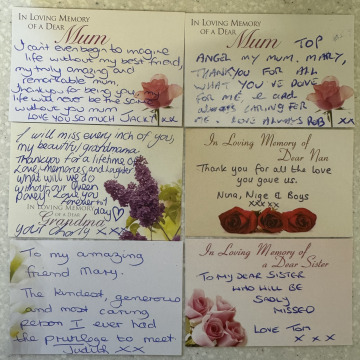 IN LOVING MEMORY
OF A DEAR
Mum
I can't even begin to imagine
life without my best friend,
my truly amazing and
remarkable mum.
Thankyou for being you, my
life will never be the same
without you in it
LOVE YOU SO MUCH JACKY xx
IN LOVING MEMORY
OF A DEAR
Mum
TOP
ANGEL MY MUM, MARY,
THANKYOU FOR ALL
WHAT YOU'VE DONE
FOR ME and
always CARING FOR
ME. LOVE ALWAYS ROB xx
I will miss every inch of you,
my beautiful grandmama
thankyou for a lifetime of
Love, memories and laughter
what will we do
without our Queen
Love you
Forever
day
IN LOVING MEMORY
OF A DEAR
Grandma
your xx
In Loving Memory of
Dear Nan
Thank you for all the love
you gave us.
Nige & Boys
xxxxx
To my amazing
friend Mary.
The kindest, generous
and most caring
person I ever had
the privilege to meet
Judith XX
In Loving Memory of
a Dear Sister
TO MY DEAR SISTER
WHO WILL BE
SADLY
MISSED
LOVE TOM
X X X